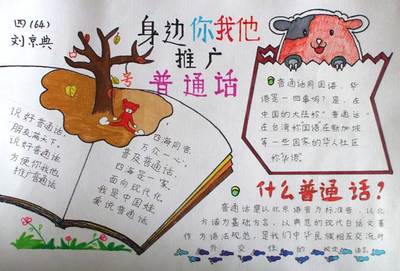 四(64)
刘京典
身边你我他
推广
普通话
说好普通话,
朋友满天下。
说好普通话
方便你我他
推广普通话
四海同音,
万众一心。
普及普通话,
四海是一家,
面向现代化
我是中国娃
爱说普通话
普通话同国语、华
语是一回事吗?是,在
中国的大陆称"普通话",
在台湾称国语在新加坡
等一些国家的华人社区
称华语。
什么普通话?
普通话是以北京语音为标准音,以北
方话为基础方言,以典范的现代白话文著
作为语法规范,是我们中华民族相互交流对
外交往的